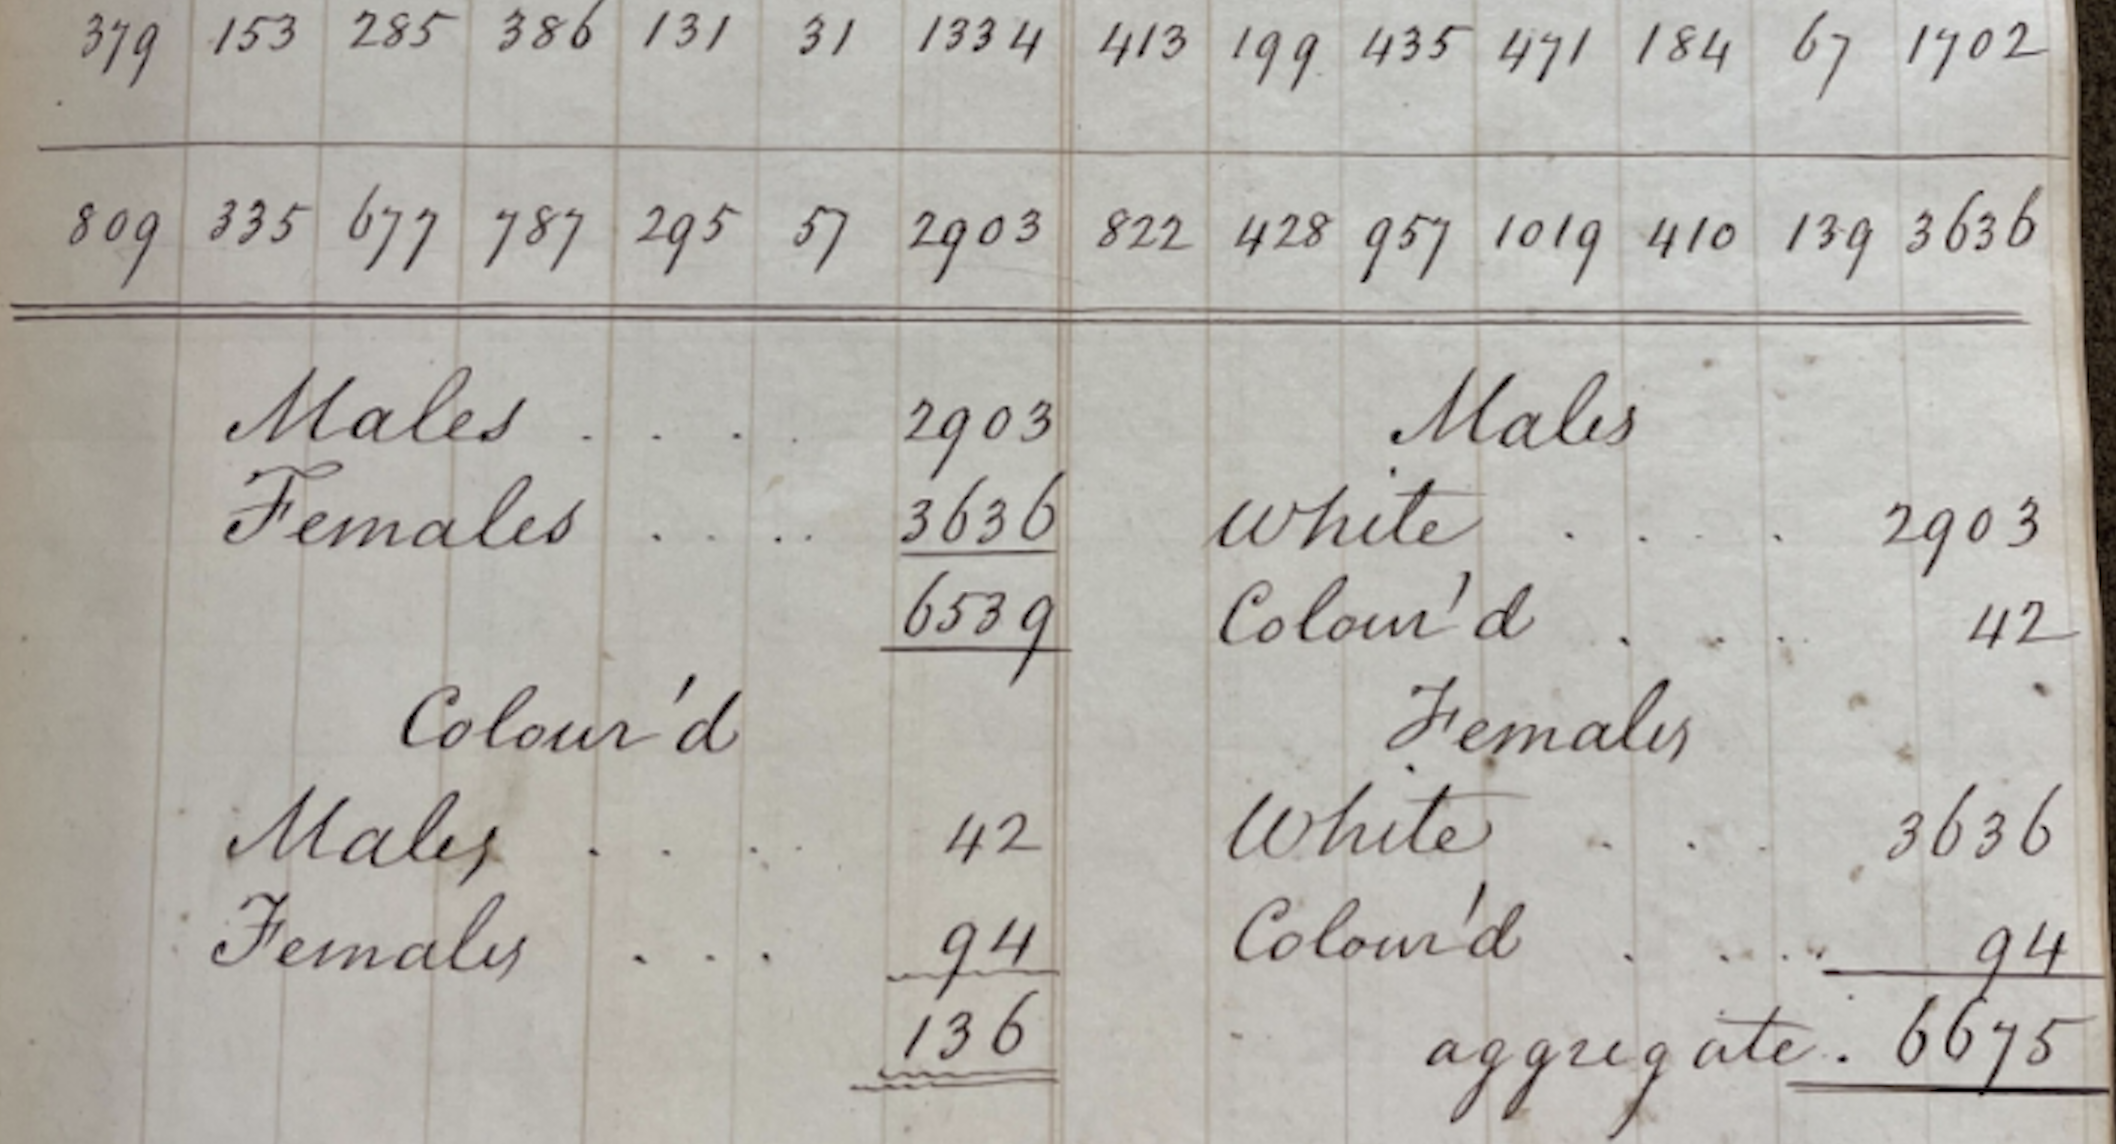 379 153 285 386 131 31 1334 413 199 435 471 184 67 1702
809 335 677 787 295 57 2903 822 428 957 1019 410 139 3636
Males . . . . 2903
Females . . . . 3636
6539
Colour'd
Males . . . . 42
Females . . . 94
136
Males
White . . . . 2903
Colour'd . . . 42
Females
White . . . 3636
Colour'd . . . . 94
aggregate . 6675